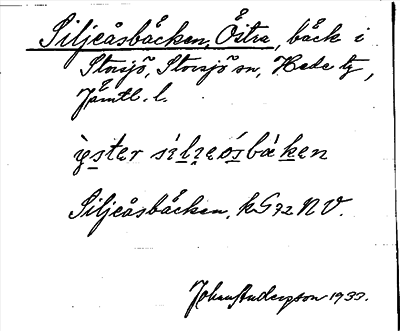 Siljeåsbäcken, Östra, bäck i
Storsjö, Storsjö sn, Hede tg,
Jämtl. l.
Siljeåsbäcken, kS 72 NV.
Johan Anderzson 1933.